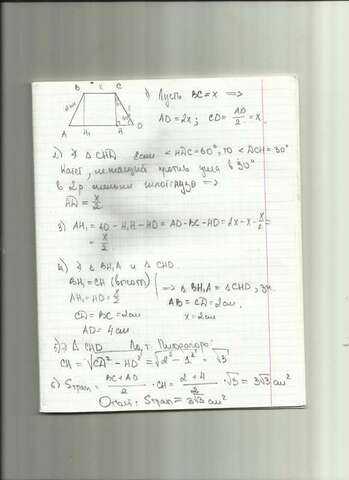 B x C
A H₁ H D
1) Пусть BC = x ⟹
AD = 2x; CD = AD/2 = x.
2) Из Δ CHD Если <HDC = 60°, то <DCH = 30°
Катет, лежащий против угла в 30°
в 2р. меньше гипотенузы ⟹
HD = x/2
3) AH₁ = AD - H₁H - HD = AD - BC - HD = 2x - x - x/2 =
= x/2
4) Из Δ BH₁A и Δ CHD
BH₁ = CH (высоты)
AH₁ = HD = x/2
⟹ Δ BH₁A = Δ CHD,
AB = CD = 2см.
CD = BC = 2см x = 2см.
AD = 4см
5) Δ CHD По т. Пифагора:
CH = √CD² - HD² = √2² - 1² = √3
6) Sтрап = BC + AD/2 · CH = 2 + 4/2 · √3 = 3√3 см²
Ответ: Sтрап = 3√3 см²